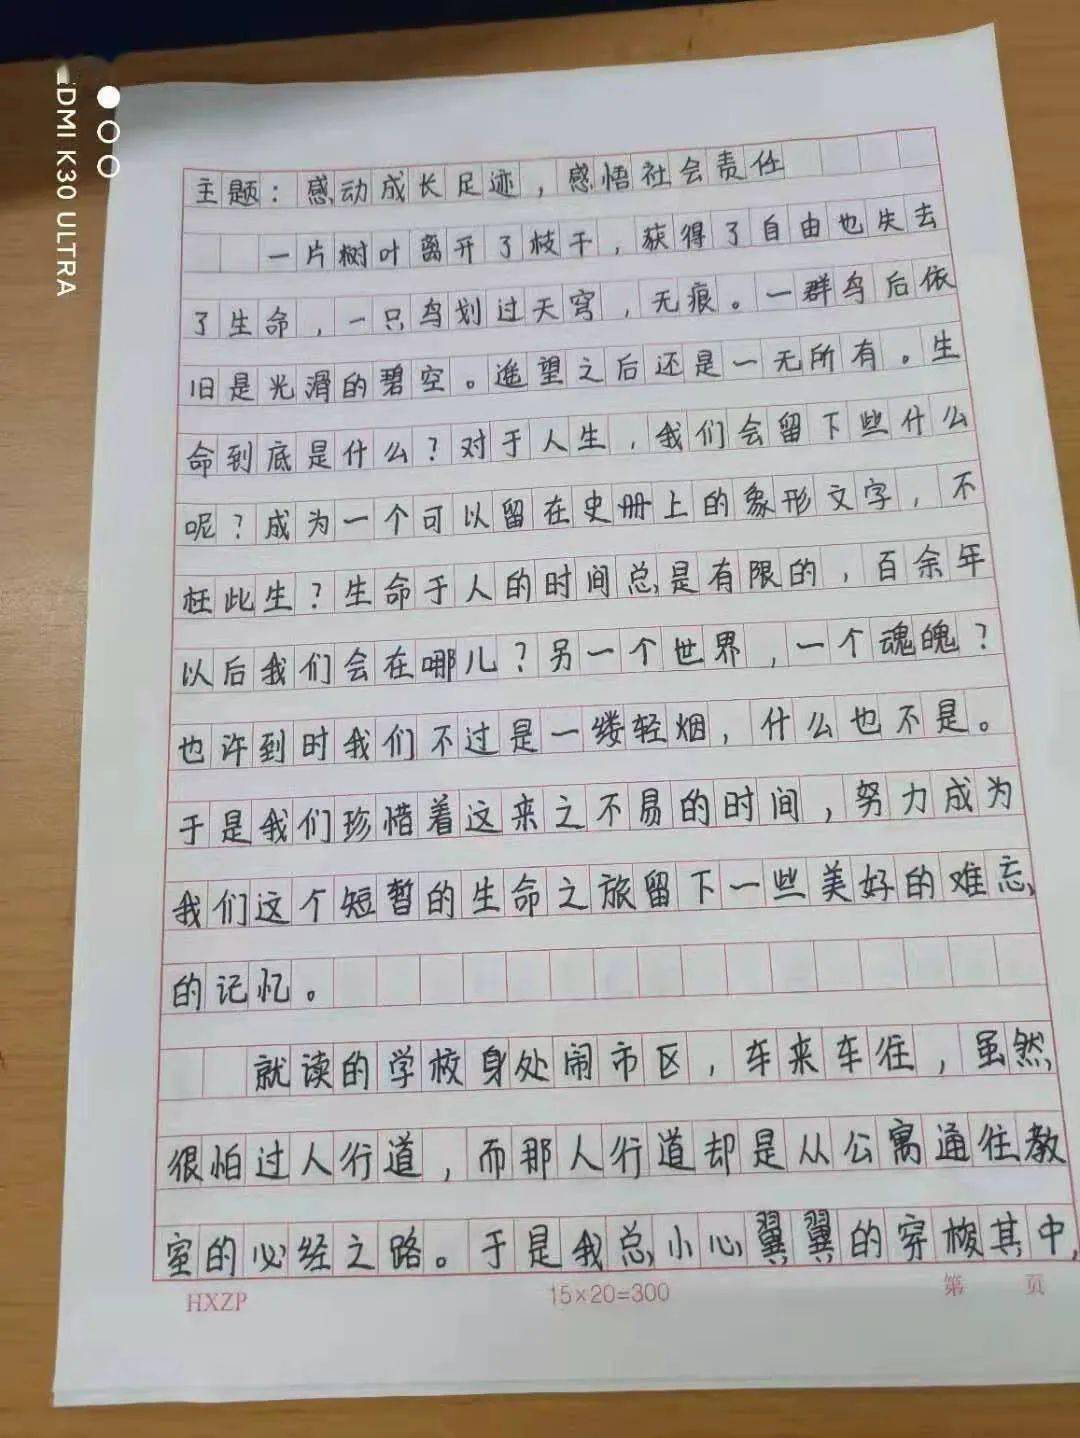 REDMI K30 ULTRA
主题：感动成长足迹，感悟社会责任
一片树叶离开了枝干，获得了自由也失去
了生命，一只鸟划过天穹，无痕。一群鸟后依
旧是光滑的碧空。遥望之后还是一无所有。生
命到底是什么？对于人生，我们会留下些什么
呢？成为一个可以留在史册上的象形文字，不
枉此生？生命于人的时间总是有限的，百余年
以后我们会在哪儿？另一个世界，一个魂魄？
也许到时我们不过是一缕轻烟，什么也不是。
于是我们珍惜着这来之不易的时间，努力成为
我们这个短暂的生命之旅留下一些美好的难忘
的记忆。
就读的学校身处闹市区，车来车往，虽然
很怕过人行道，而那人行道却是从公寓通往教
室的必经之路。于是我总小心翼翼的穿梭其中，
HXZP
15×20=300
第 页